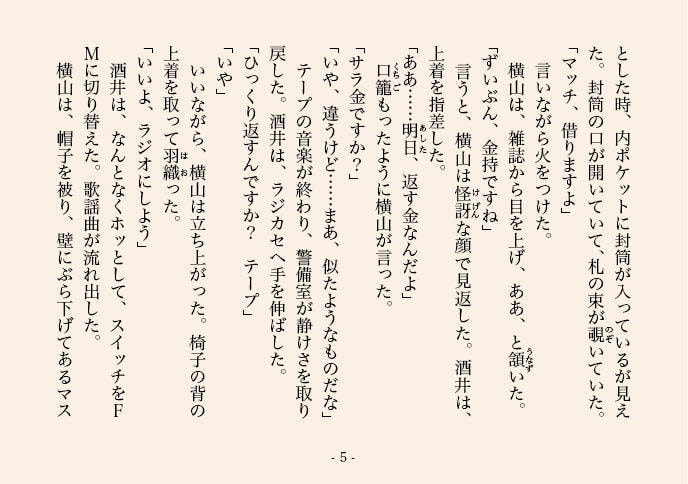 とした時、内ポケットに封筒が入っているが見え
た。封筒の口が開いていて、札の束が覗いていた。
「マッチ、借りますよ」
言いながら火をつけた。
横山は、雑誌から目を上げ、ああ、と頷いた。
「ずいぶん、金持ですね」
言うと、横山は怪訝な顔で見返した。酒井は、
上着を指差した。
「ああ……明日、返す金なんだよ」
口籠もったように横山が言った。
「サラ金ですか？」
「いや、違うけど……まあ、似たようなものだな」
テープの音楽が終わり、警備室が静けさを取り
戻した。酒井は、ラジカセへ手を伸ばした。
「ひっくり返すんですか？　テープ」
「いや」
いいながら、横山は立ち上がった。椅子の背の
上着を取って羽織った。
「いいよ、ラジオにしよう」
酒井は、なんとなくホッとして、スイッチをＦ
Ｍに切り替えた。歌謡曲が流れ出した。
横山は、帽子を被り、壁にぶら下げてあるマス
- 5 -